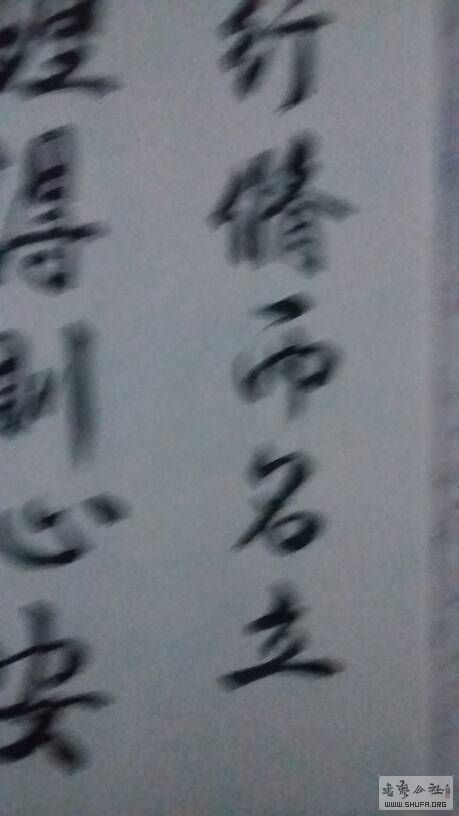 行脩而名立
理得則心安
書藝公社
WWW.SHUFA.ORG